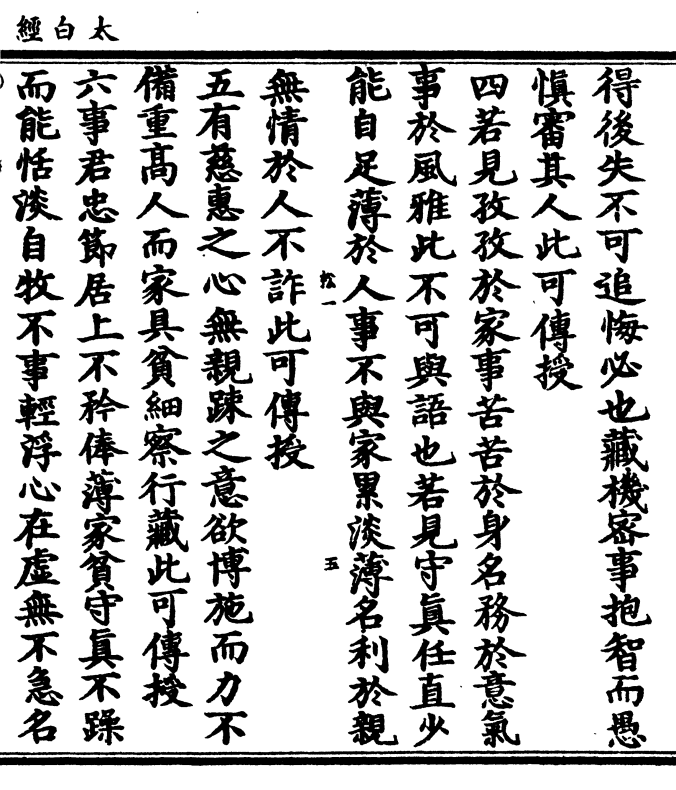 太白經
得後失不可追悔必也藏機密事抱智而愚
慎審其人此可傳授
四若見孜孜於家事苦苦於身名務於意氣
事於風雅此不可與語也若見守真任直少
能自足薄於人事不與家累淡薄名利於親
松一
五
無情於人不詐此可傳授
五有慈惠之心無親踈之意欲博施而力不
備重高人而家具貧細察行藏此可傳授
六事君忠節居上不矜俸薄家貧守真不躁
而能恬淡自牧不事輕浮心在虛無不急名